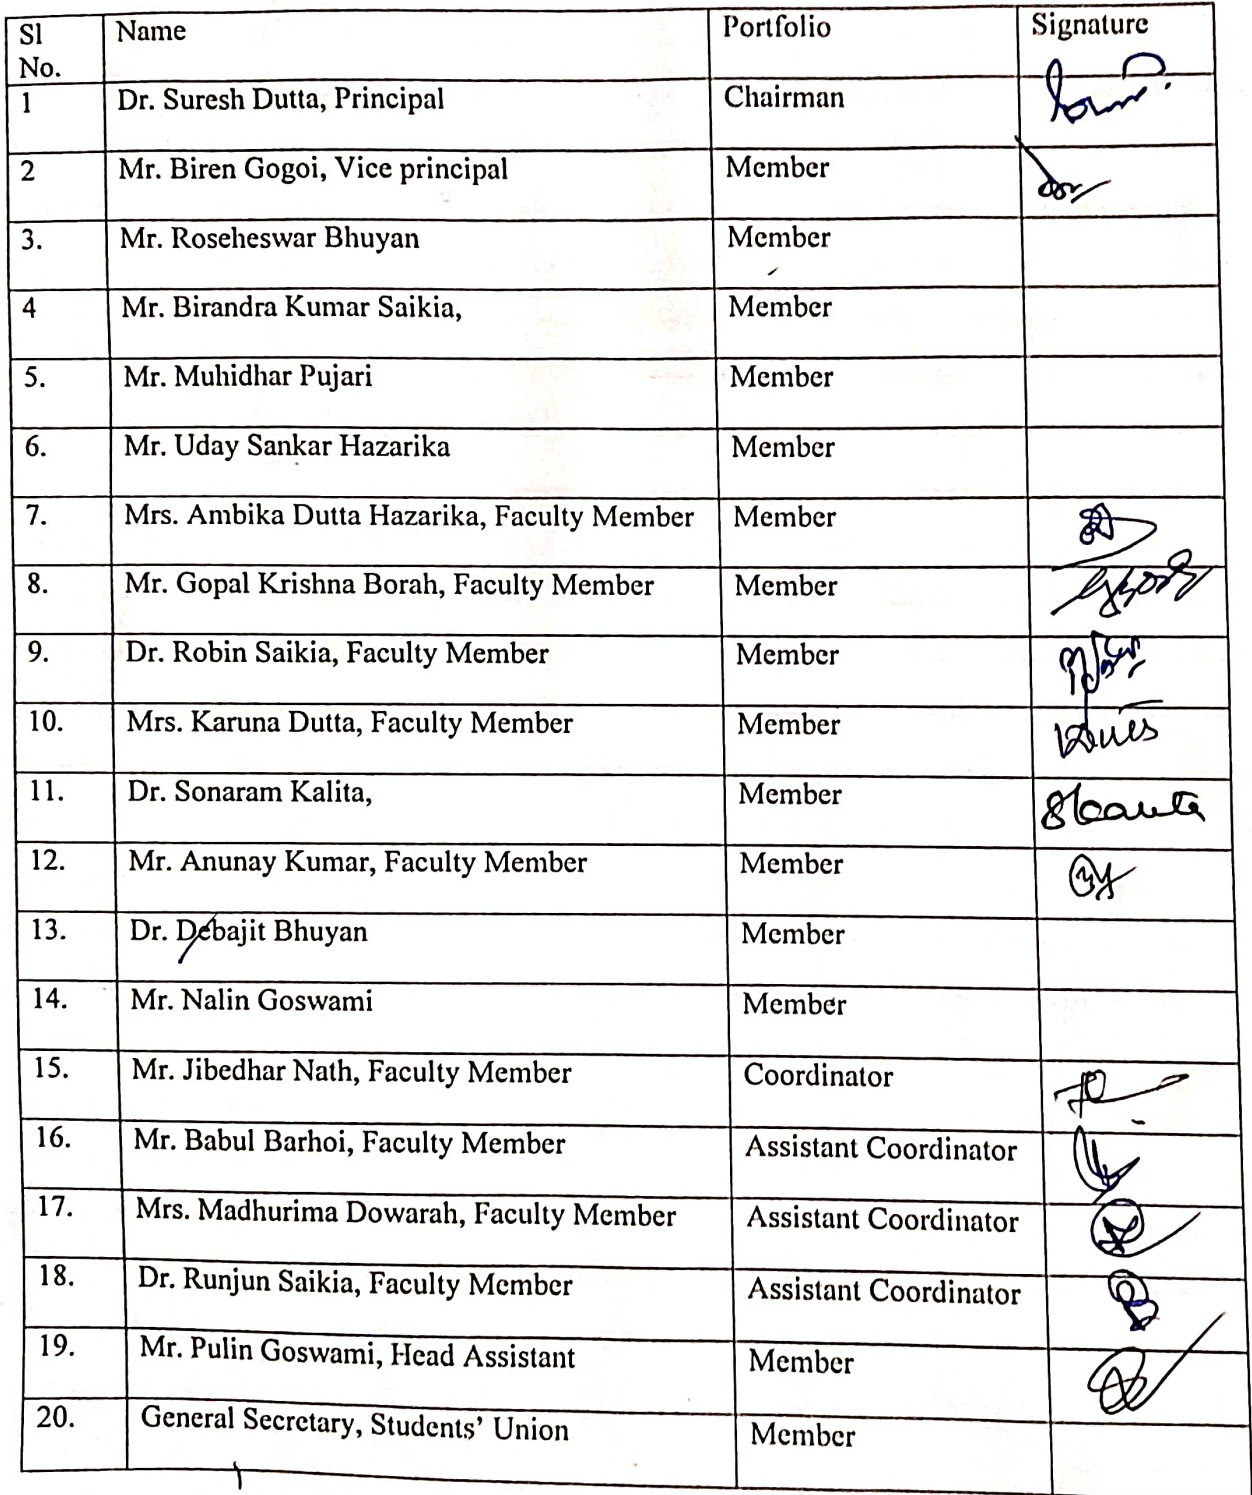 Sl No. Name Portfolio Signature
1 Dr. Suresh Dutta, Principal Chairman
2 Mr. Biren Gogoi, Vice principal Member
3. Mr. Roseheswar Bhuyan Member
4 Mr. Birandra Kumar Saikia, Member
5. Mr. Muhidhar Pujari Member
6. Mr. Uday Sankar Hazarika Member
7. Mrs. Ambika Dutta Hazarika, Faculty Member Member
8. Mr. Gopal Krishna Borah, Faculty Member Member
9. Dr. Robin Saikia, Faculty Member Member
10. Mrs. Karuna Dutta, Faculty Member Member
11. Dr. Sonaram Kalita, Member
12. Mr. Anunay Kumar, Faculty Member Member
13. Dr. Debajit Bhuyan Member
14. Mr. Nalin Goswami Member
15. Mr. Jibedhar Nath, Faculty Member Coordinator
16. Mr. Babul Barhoi, Faculty Member Assistant Coordinator
17. Mrs. Madhurima Dowarah, Faculty Member Assistant Coordinator
18. Dr. Runjun Saikia, Faculty Member Assistant Coordinator
19. Mr. Pulin Goswami, Head Assistant Member
20. General Secretary, Students' Union Member